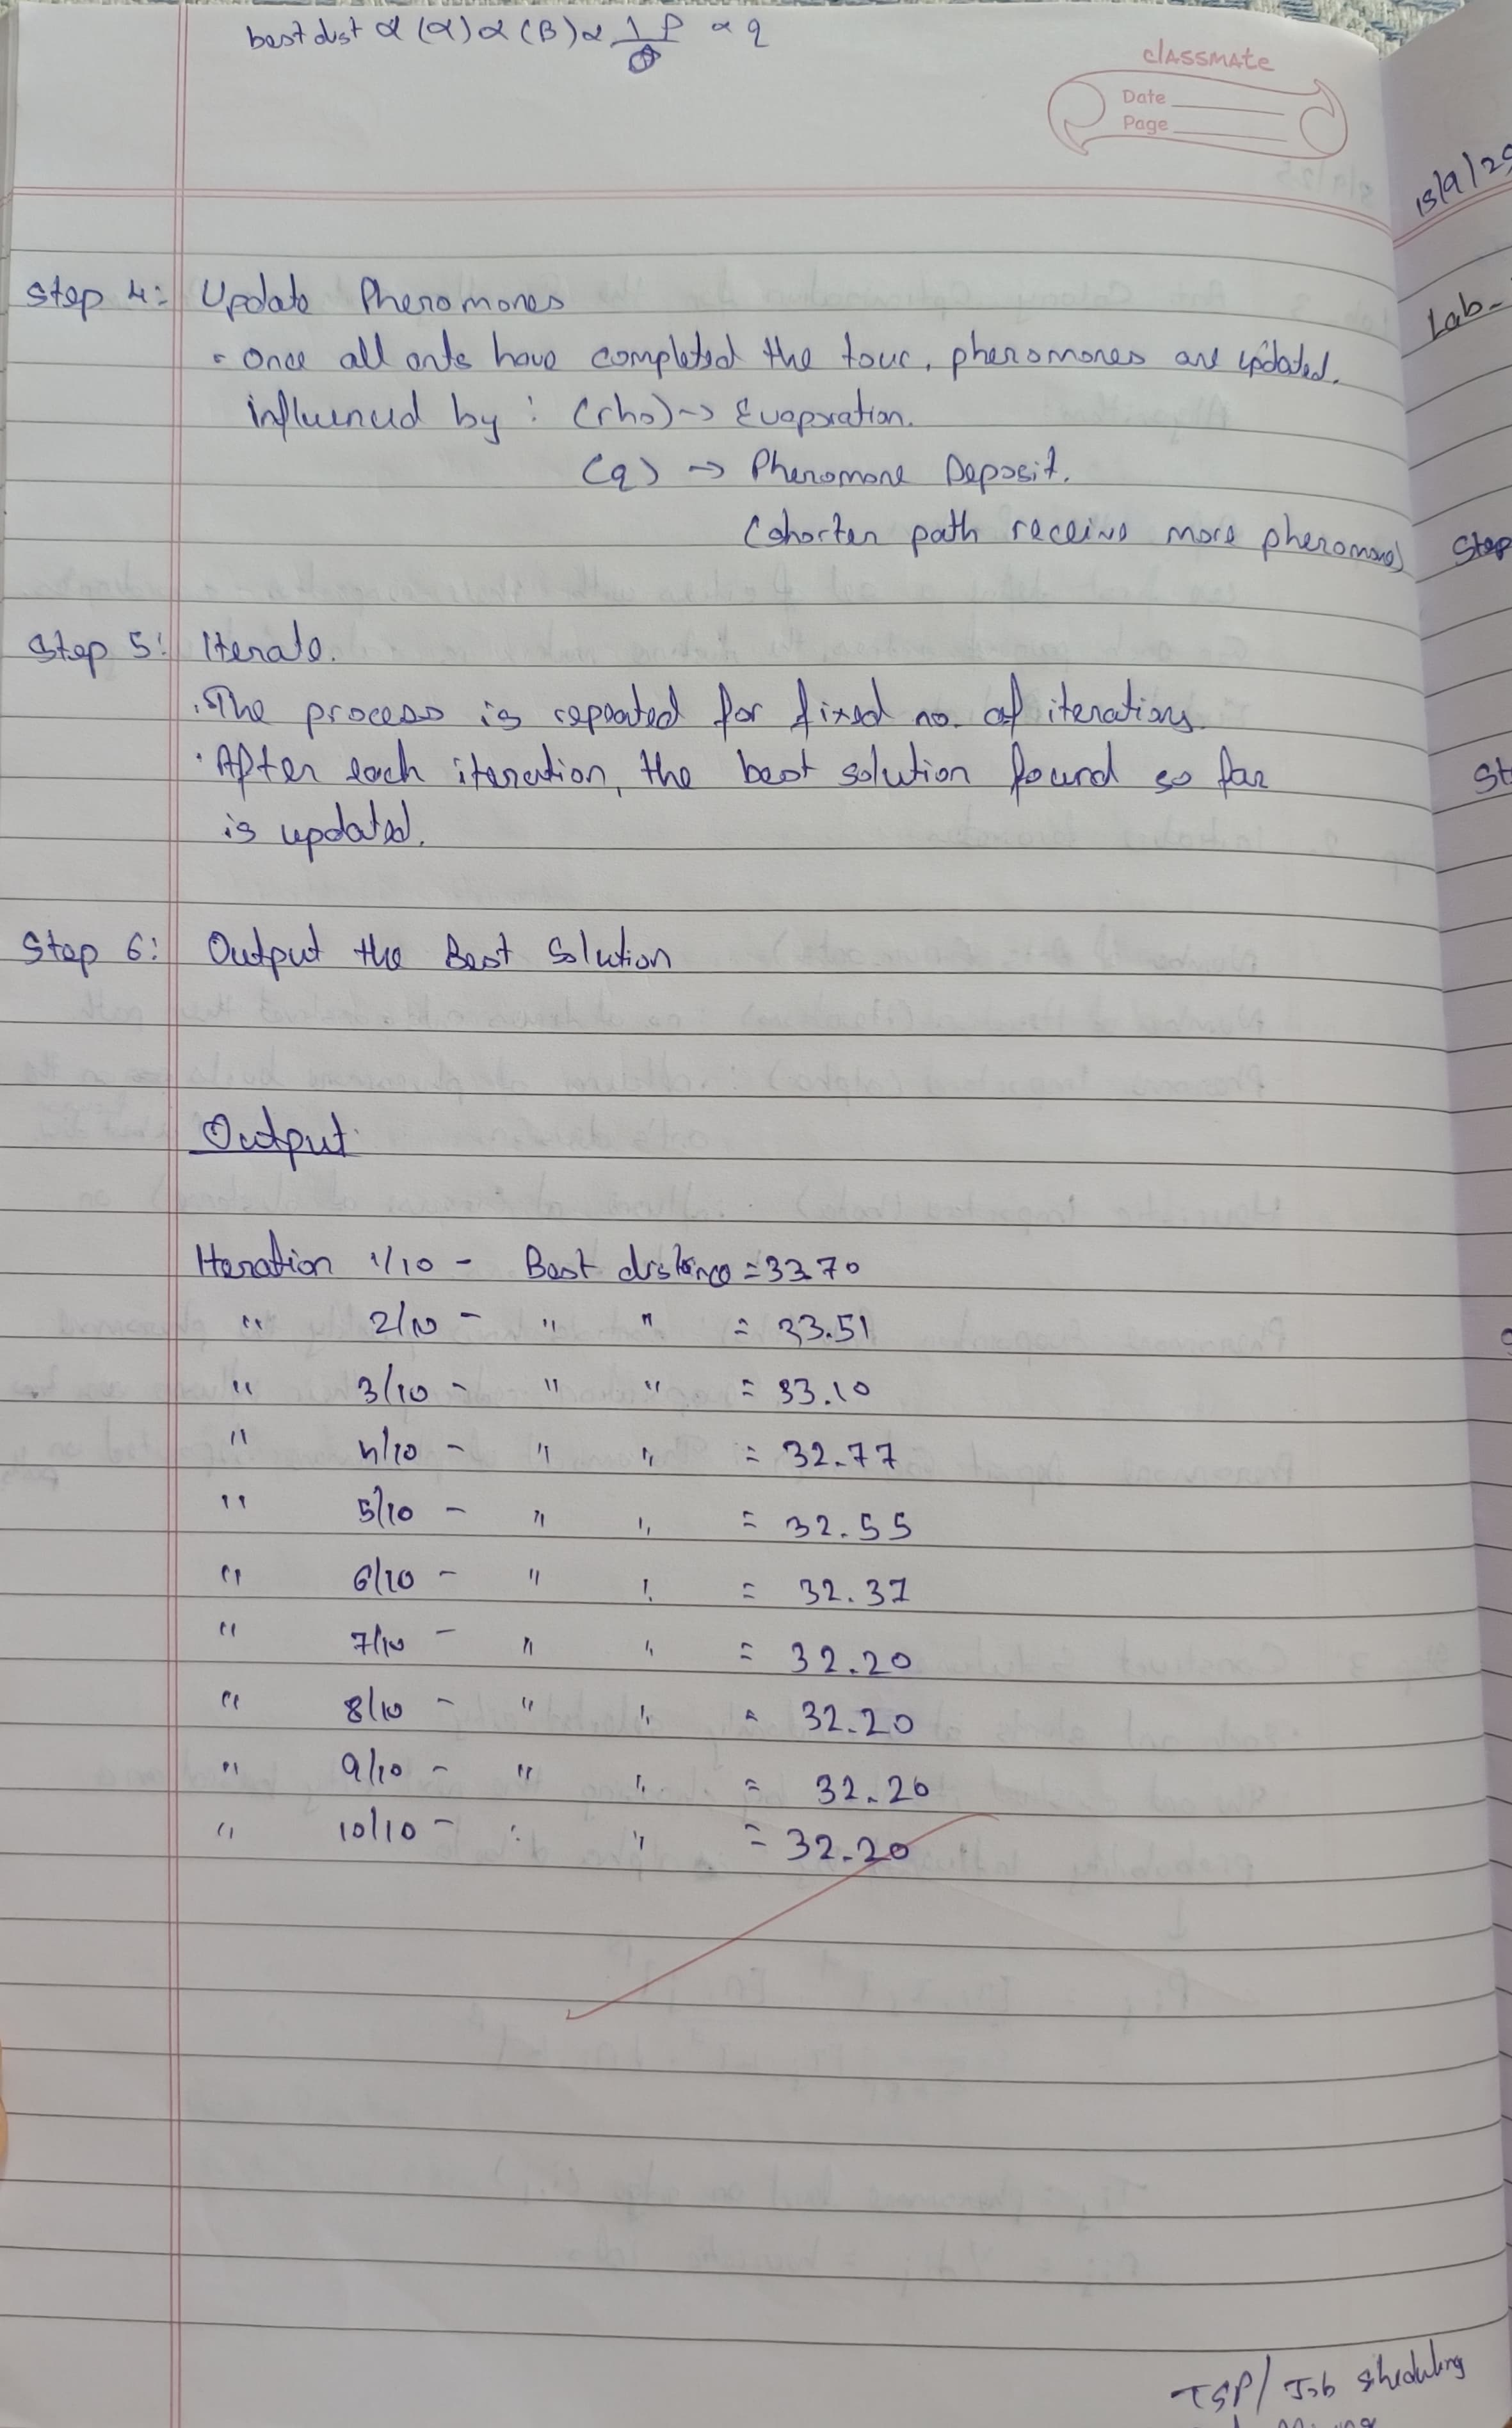 best dist α (α) α (β) α 1 ρ α q
classmate
Date
Page
Step 4: Update Pheromones
· Once all ants have completed the tour, pheromones are updated.
influenced by : (rho) → Evaporation.
(q) → Pheromone Deposit.
(shorter path receive more pheromones)
Step 5: Iterate.
· The process is repeated for fixed no. of iterations.
· After each iteration, the best solution found so far
is updated.
Step 6: Output the Best Solution
Output
Iteration 1/10 - Best distance = 33.70
" 2/10 - " " = 33.51
" 3/10 - " " = 33.10
" 4/10 - " " = 32.77
" 5/10 - " " = 32.55
" 6/10 - " " = 32.37
" 7/10 - " " = 32.20
" 8/10 - " " = 32.20
" 9/10 - " " = 32.20
" 10/10 - " " = 32.20
TSP/ Job sheduling
Lab-
Step
St